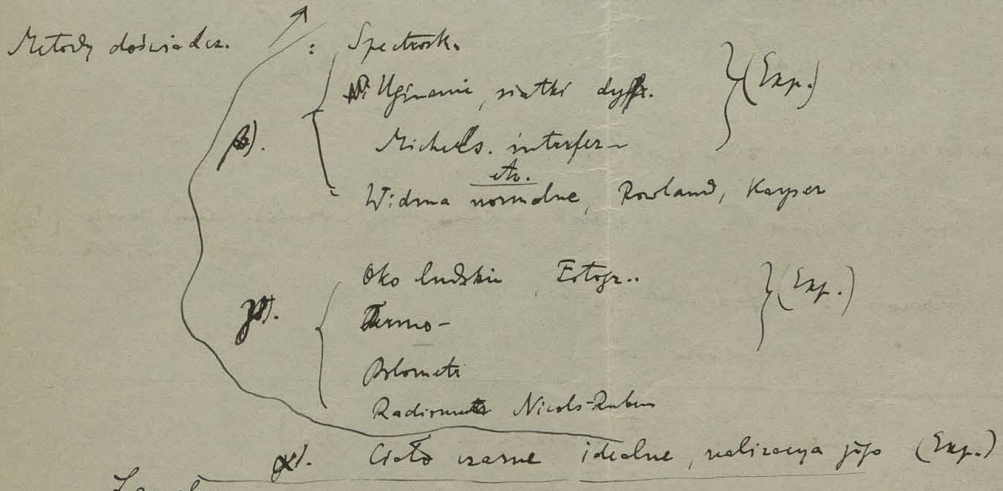 Metody doświadcz. : Spectrosk.
Uginanie, siatki dyfr. (Exp.)
β). Michels. interfer-
etc.
Widma normalne, Rowland, Kayser
Oko ludzkie Fotogr..
γ). (Exp.)
Termo-
Bolometr
Radiometr Nicols-Rubens
α). Ciało czarne idealne, realizacya jego (Exp.)